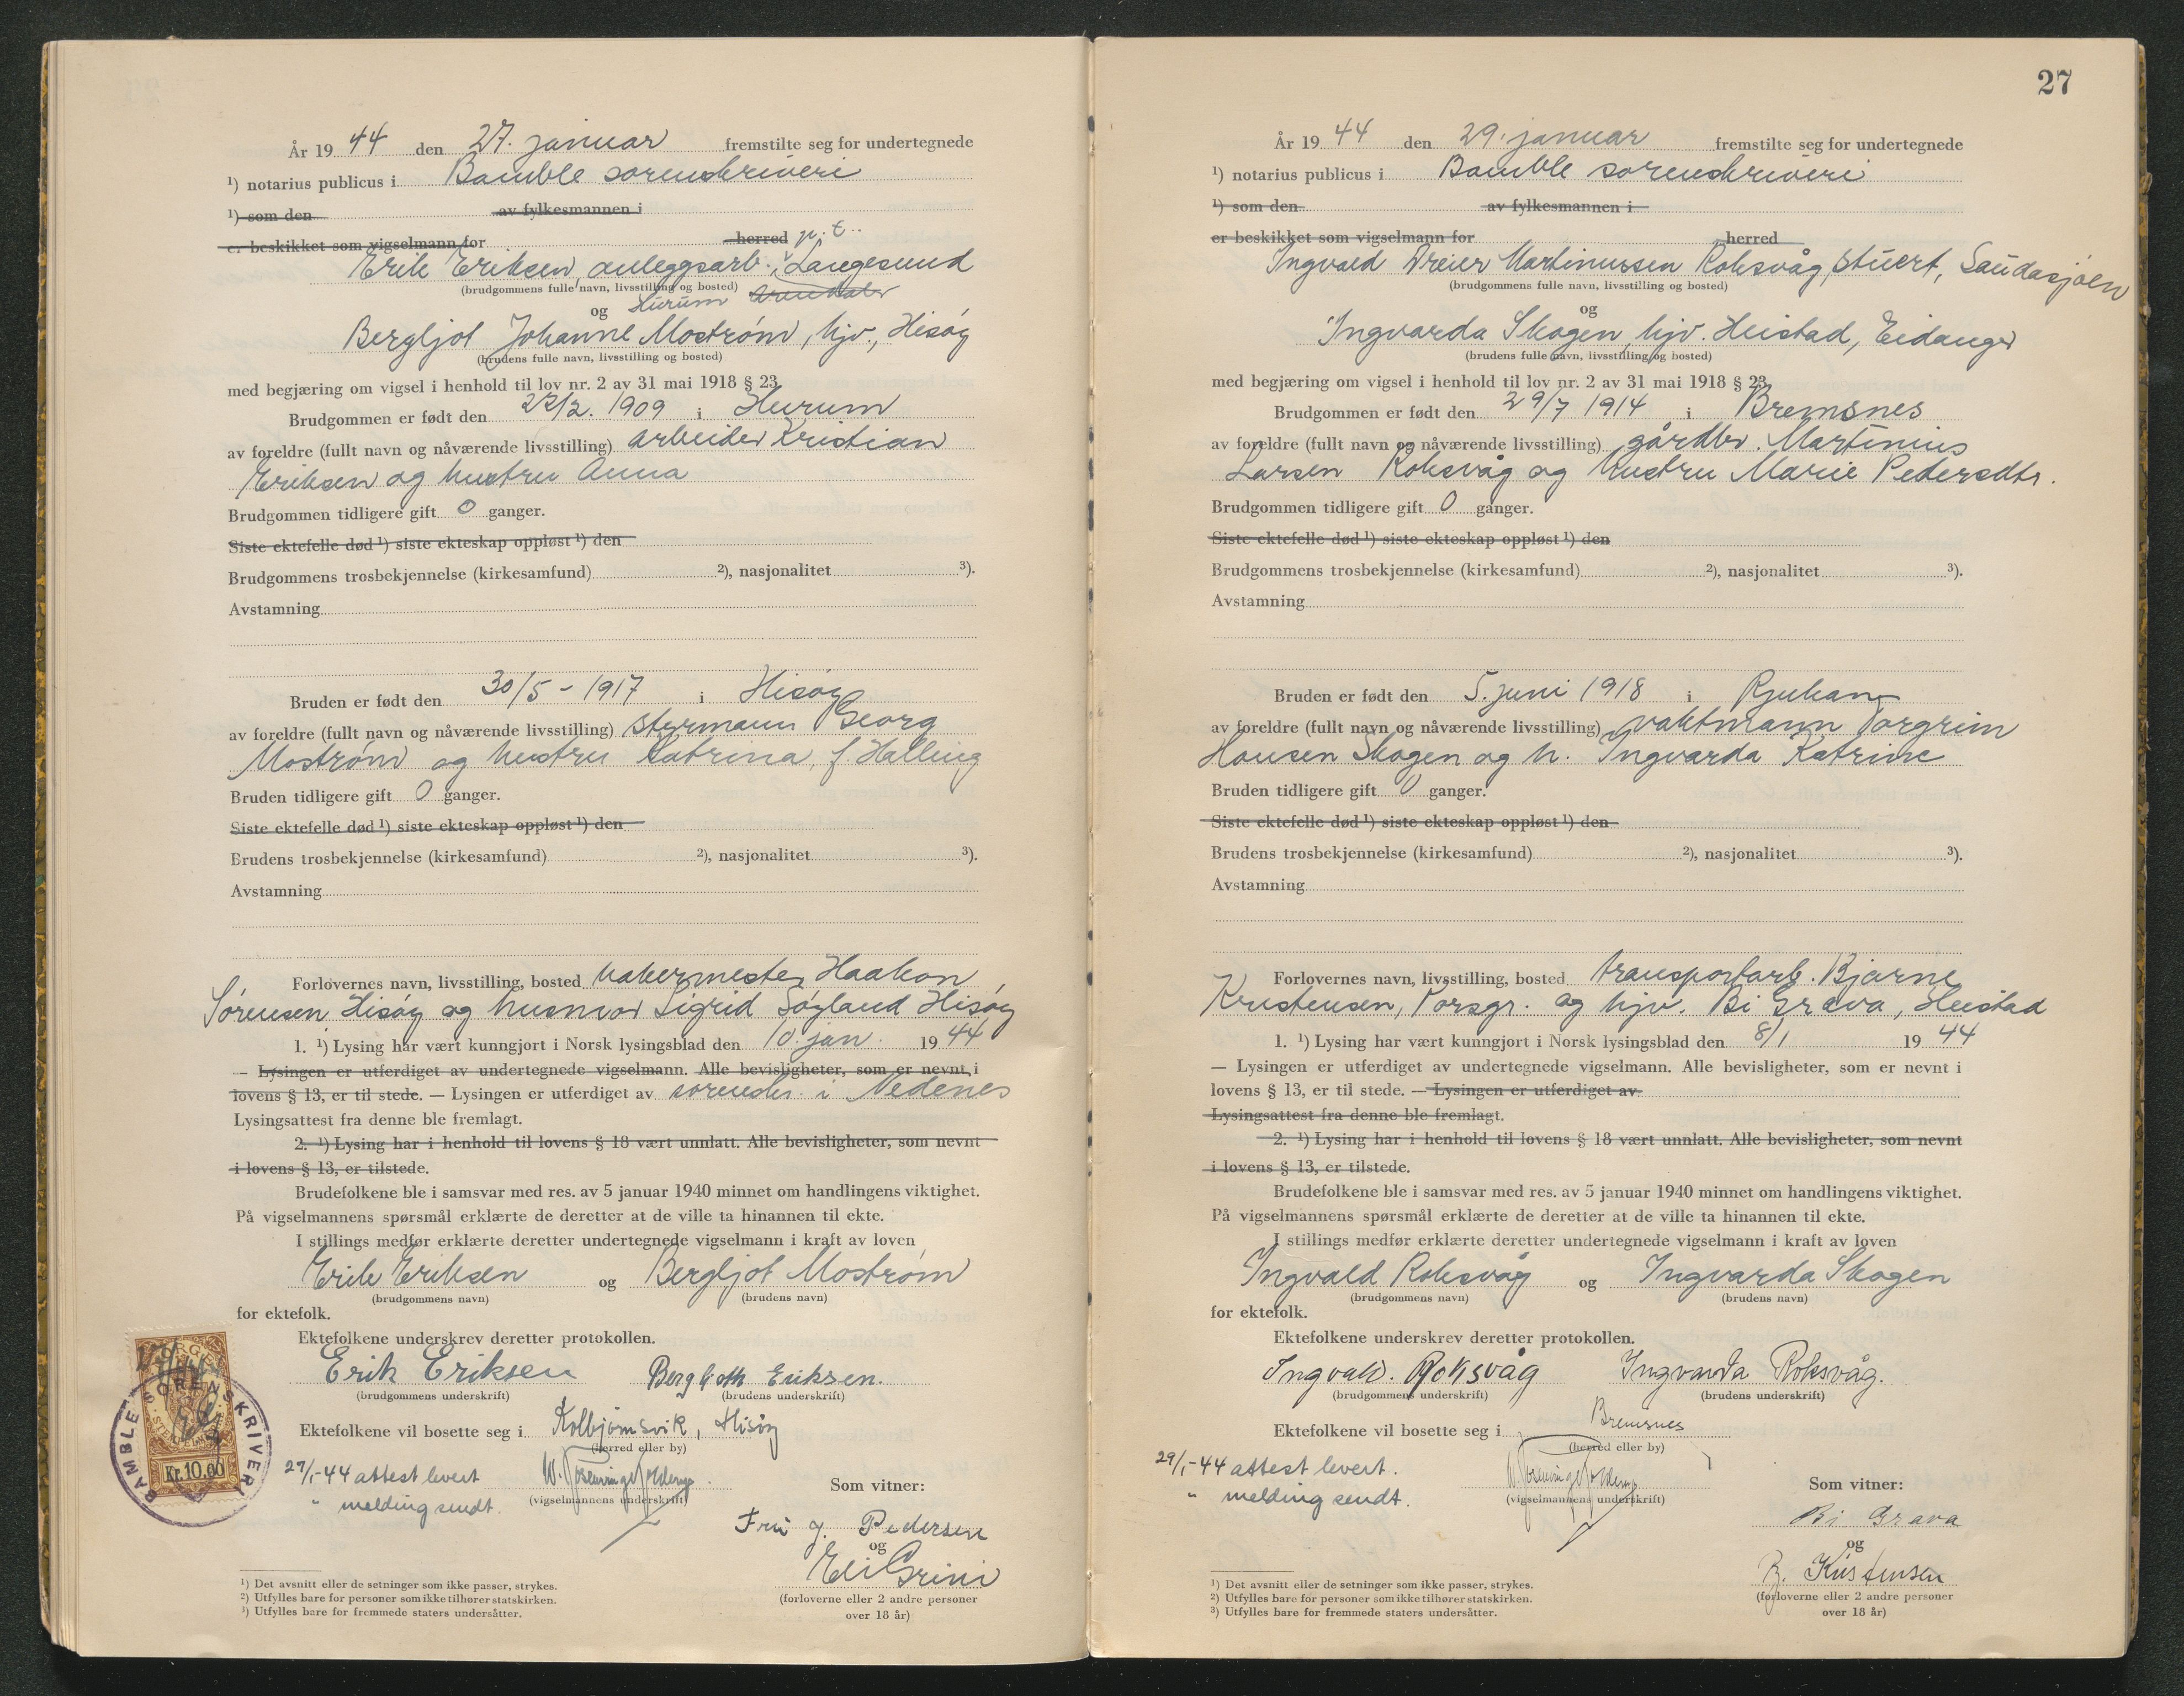 År 1944 den 27. januar fremstilte seg for undertegnede
¹) notarius publicus i Bamble sorenskriveri
¹) som den av fylkesmannen i
er beskikket som vigselmann for herred p. t.
Erik Eriksen, anleggsarb., Langesund
(brudgommens fulle navn, livsstilling og bosted)
og Hurum
Bergljot Johanne Mostrøm, hjv., Hisøy
(brudens fulle navn, livsstilling og bosted)
med begjæring om vigsel i henhold til lov nr. 2 av 31 mai 1918 § 23
Brudgommen er født den /2. 1909 i Hurum
av foreldre (fullt navn og nåværende livsstilling) arbeider Kristian
Eriksen og hustru Anna
Brudgommen tidligere gift 0 ganger.
Siste ektefelle død ¹) siste ekteskap oppløst ¹) den
Brudgommens trosbekjennelse (kirkesamfund) ²), nasjonalitet ³).
Avstamning
Bruden er født den 30/5 - 1917 i Hisøy
av foreldre (fullt navn og nåværende livsstilling) styrmann Georg
Mostrøm og hustru Katrina, f. Halling
Bruden tidligere gift 0 ganger.
Siste ektefelle død ¹) siste ekteskap oppløst ¹) den
Brudens trosbekjennelse (kirkesamfund) ²), nasjonalitet ³).
Avstamning
Forlovernes navn, livsstilling, bosted Haakon
Sørensen, Hisøy og husmor Sigrid Søyland Hisøy
1. ¹) Lysing har vært kunngjort i Norsk lysingsblad den 10. jan. 1944
— Lysingen er utferdiget av undertegnede vigselmann. Alle bevisligheter, som er nevnt i
lovens § 13, er til stede. — Lysingen er utferdiget av sorenskr. i Nedenes
Lysingsattest fra denne ble fremlagt.
2. ¹) Lysing har i henhold til lovens § 18 vært unnlatt. Alle bevisligheter, som nevnt
i lovens § 13, er tilstede.
Brudefolkene ble i samsvar med res. av 5 januar 1940 minnet om handlingens viktighet.
På vigselmannens spørsmål erklærte de deretter at de ville ta hinannen til ekte.
I stillings medfør erklærte deretter undertegnede vigselmann i kraft av loven
Erik Eriksen og Bergljot Mostrøm
(brudgommens navn) (brudens navn)
for ektefolk.
Ektefolkene underskrev deretter protokollen.
Erik Eriksen Bergljoth Eriksen.
(brudgommens underskrift) (brudens underskrift)
Ektefolkene vil bosette seg i Kolbjørnsvik, Hisøy
(herred eller by)
27/1-44 attest levert
(vigselmannens underskrift) Som vitner:
" melding sendt.
Fru J. Pedersen
og
Eli Grini
(forloverne eller 2 andre personer
over 18 år)
¹) Det avsnitt eller de setninger som ikke passer, strykes.
²) Utfylles bare for personer som ikke tilhører statskirken.
³) Utfylles bare for fremmede staters undersåtter.
BAMBLE SORENSKRIVERI
Kr. 10.00
27
År 1944 den 29. januar fremstilte seg for undertegnede
¹) notarius publicus i Bamble sorenskriveri
¹) som den av fylkesmannen i
er beskikket som vigselmann for herred
Ingvald Dreier Martinussen Roksvåg, stuert, Saudasjøen
(brudgommens fulle navn, livsstilling og bosted)
og
Ingvarda Skogen, hjv. Heistad, Eidanger
(brudens fulle navn, livsstilling og bosted)
med begjæring om vigsel i henhold til lov nr. 2 av 31 mai 1918 § 23
Brudgommen er født den 29/7 1914 i Bremsnes
av foreldre (fullt navn og nåværende livsstilling) gårdbr. Martinius
Larsen Roksvåg og hustru Marie Pedersdtr.
Brudgommen tidligere gift 0 ganger.
Siste ektefelle død ¹) siste ekteskap oppløst ¹) den
Brudgommens trosbekjennelse (kirkesamfund) ²), nasjonalitet ³).
Avstamning
Bruden er født den 5. juni 1918 i Rjukan
av foreldre (fullt navn og nåværende livsstilling) vaktmann Torgrim
Hansen Skogen og h. Ingvarda Katrine
Bruden tidligere gift 0 ganger.
Siste ektefelle død ¹) siste ekteskap oppløst ¹) den
Brudens trosbekjennelse (kirkesamfund) ²), nasjonalitet ³).
Avstamning
Forlovernes navn, livsstilling, bosted transportarb. Bjarne
Kristensen, Porsgr. og hjv. Bi Grava, Heistad
1. ¹) Lysing har vært kunngjort i Norsk lysingsblad den 8/1 1944
— Lysingen er utferdiget av undertegnede vigselmann. Alle bevisligheter, som er nevnt i
lovens § 13, er til stede. — Lysingen er utferdiget av
Lysingsattest fra denne ble fremlagt.
2. ¹) Lysing har i henhold til lovens § 18 vært unnlatt. Alle bevisligheter, som nevnt
i lovens § 13, er tilstede.
Brudefolkene ble i samsvar med res. av 5 januar 1940 minnet om handlingens viktighet.
På vigselmannens spørsmål erklærte de deretter at de ville ta hinannen til ekte.
I stillings medfør erklærte deretter undertegnede vigselmann i kraft av loven
Ingvald Roksvåg og Ingvarda Skogen
(brudgommens navn) (brudens navn)
for ektefolk.
Ektefolkene underskrev deretter protokollen.
Ingvald. Roksvåg Ingvarda Roksvåg.
(brudgommens underskrift) (brudens underskrift)
Ektefolkene vil bosette seg i Bremsnes
(herred eller by)
29/1-44 attest levert.
(vigselmannens underskrift) Som vitner:
" melding sendt.
Bi Grava
og
B. Kristensen
(forloverne eller 2 andre personer
over 18 år)
¹) Det avsnitt eller de setninger som ikke passer, strykes.
²) Utfylles bare for personer som ikke tilhører statskirken.
³) Utfylles bare for fremmede staters undersåtter.